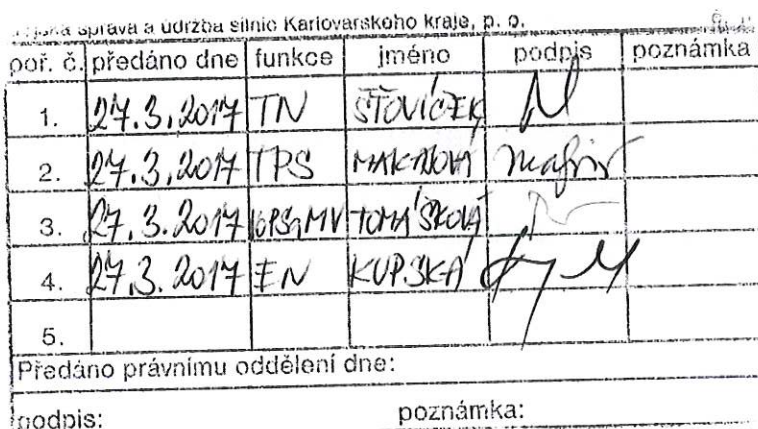 správa a údržba silnic Karlovarského kraje, p. o.
poř. č. předáno dne funkce jméno podpis poznámka
1. 27.3.2017 TN ŠŤOVÍČEK
2. 27.3.2017 TPS
3. 27.3.2017 TOMÁŠKOVÁ
4. 27.3.2017 EN KUPSKÁ
5.
Předáno právnímu oddělení dne:
podpis: poznámka: